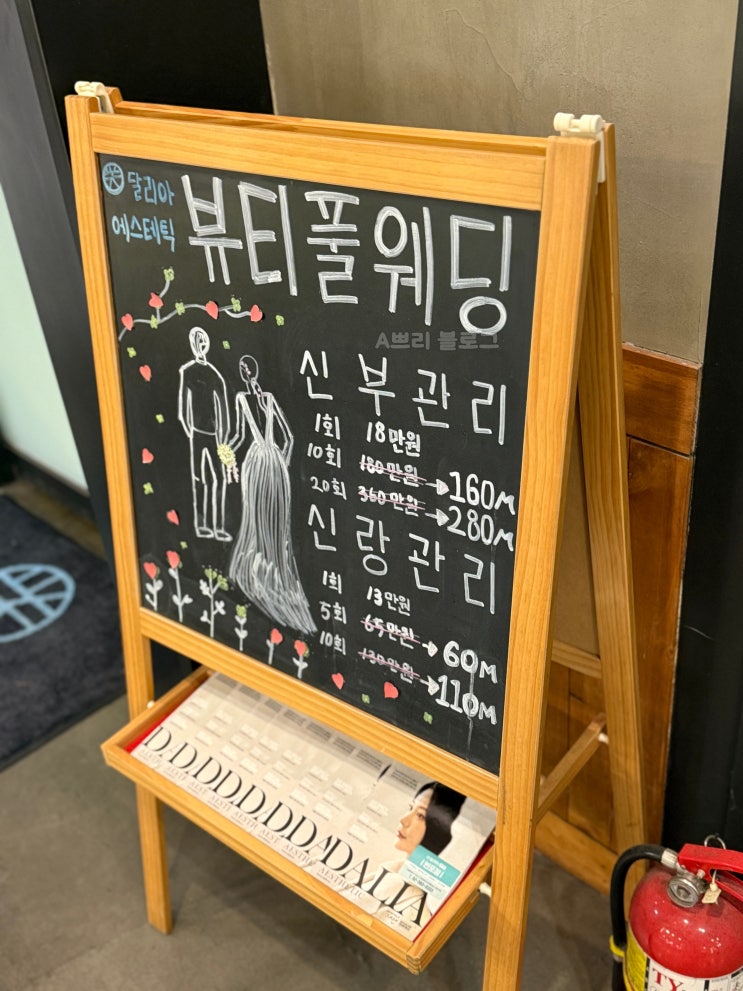 달리아
에스테틱
뷰티풀웨딩
A쁘리 블로그
신부관리
1회 18만원
10회 180만원 → 160M
20회 360만원 → 280M
신랑관리
1회 13만원
5회 65만원 → 60M
10회 130만원 → 110M
DDDDDDDDADALIA
AESTHETIC
TY